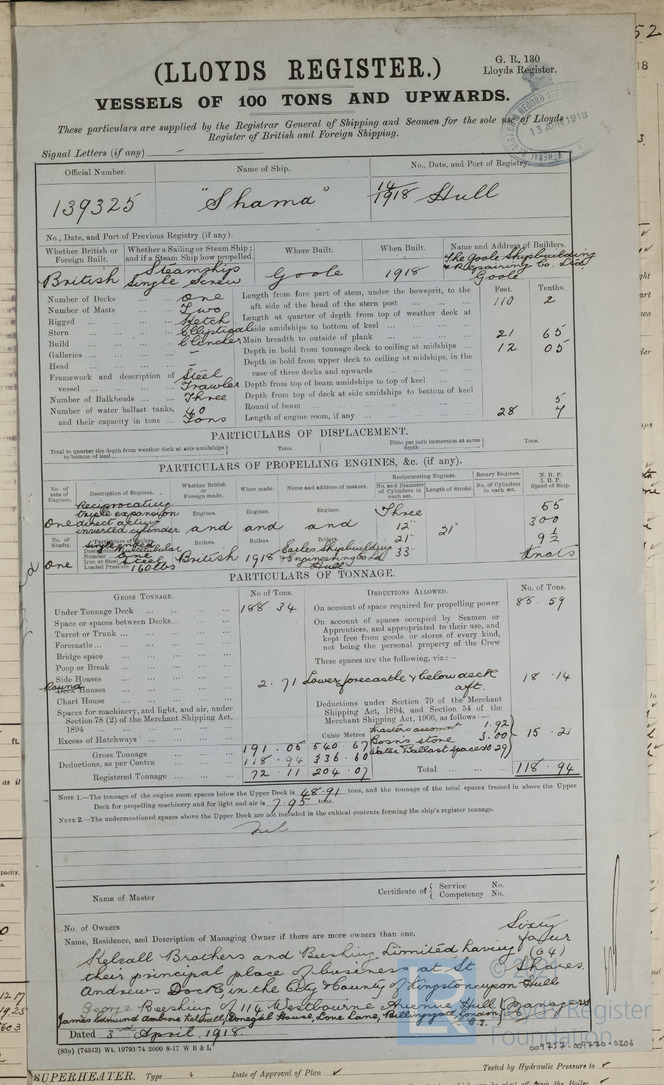 G. R. 130
Lloyds Register.
(LLOYDS REGISTER.)
VESSELS OF 100 TONS AND UPWARDS.
13 APR 1918
These particulars are supplied by the Registrar General of Shipping and Seamen for the sole use of Lloyds
Register of British and Foreign Shipping.
Signal Letters (if any)
Official Number.
Name of Ship.
No., Date, and Port of Registry.
139325
"Shama"
14/1918 Hull
No., Date, and Port of Previous Registry (if any).
Whether British or Foreign Built.
Whether a Sailing or Steam Ship; and if a Steam Ship how propelled.
Where Built.
When Built.
Name and Address of Builders.
British
Steamship Single Screw
Goole
1918
The Goole Shipbuilding & Repairing Co. Ltd Goole
Number of Decks One
Number of Masts Two
Rigged Ketch
Stern Elliptical
Build Clencher
Galleries —
Head
Framework and description of vessel Steel Trawler
Number of Bulkheads Three
Number of water ballast tanks, and their capacity in tons 40 Tons
Feet. Tenths.
Length from fore part of stem, under the bowsprit, to the aft side of the head of the stern post 110 2
Length at quarter of depth from top of weather deck at side amidships to bottom of keel
Main breadth to outside of plank 21 65
Depth in hold from tonnage deck to ceiling at midships 12 05
Depth in hold from upper deck to ceiling at midships, in the case of three decks and upwards
Depth from top of beam amidships to top of keel
Depth from top of deck at side amidships to bottom of keel
Round of beam 5
Length of engine room, if any 28 7
PARTICULARS OF DISPLACEMENT.
Total to quarter the depth from weather deck at side amidships to bottom of keel Tons.
Ditto per inch immersion at same depth Tons.
PARTICULARS OF PROPELLING ENGINES, &c. (if any).
No. of sets of Engines.
Description of Engines.
Whether British or Foreign made.
When made.
Name and address of makers.
Reciprocating Engines.
No. and Diameter of Cylinders in each set.
Length of Stroke.
Rotary Engines.
No. of Cylinders in each set.
N. H. P. I. H. P. Speed of Ship.
One
Reciprocating triple expansion direct acting inverted cylinder
Engines. Engines. Engines.
and and and
Three
12"
21"
33"
21"
55
300
9½
Knots
No. of Shafts.
One
Particulars of Boilers.
Single ended Multitubular
Number One
Iron or Steel Steel
Loaded Pressure 160 lbs
Boilers. Boilers. Boilers.
British 1918 Earles Shipbuilding & Engineering Co Ld Hull
PARTICULARS OF TONNAGE.
GROSS TONNAGE. No of Tons.
Under Tonnage Deck 188 . 34
Space or spaces between Decks
Turret or Trunk
Forecastle
Bridge space
Poop or Break
Side Houses
Round Houses 2 . 71
Chart House
Spaces for machinery, and light, and air, under Section 78 (2) of the Merchant Shipping Act, 1894
Excess of Hatchways
Cubic Metres
Gross Tonnage 191 . 05 540 . 67
Deductions, as per Contra 118 . 94 336 . 60
Registered Tonnage 72 . 11 204 . 07
DEDUCTIONS ALLOWED. No. of Tons.
On account of space required for propelling power 85 . 59
On account of spaces occupied by Seamen or Apprentices, and appropriated to their use, and kept free from goods or stores of every kind, not being the personal property of the Crew
These spaces are the following, viz.:—
Lower forecastle & below deck aft. 18 . 14
Deductions under Section 79 of the Merchant Shipping Act, 1894, and Section 54 of the Merchant Shipping Act, 1906, as follows:—
Masters accomn 1.92
Bosn's store 3.00
Water Ballast spaces 10.29
15 . 21
Total 118 . 94
NOTE 1.—The tonnage of the engine room spaces below the Upper Deck is 48.91 tons, and the tonnage of the total spaces framed in above the Upper
Deck for propelling machinery and for light and air is 7.95 tons.
NOTE 2.—The undermentioned spaces above the Upper Deck are not included in the cubical contents forming the ship's register tonnage.
Nil
Name of Master
Certificate of { Service No. Competency No.
No. of Owners
Name, Residence, and Description of Managing Owner if there are more owners than one.
Sixty four (64) Shares.
Kelsall Brothers and Beeching Limited having
their principal place of business at St
Andrews Dock, in the City & County of Kingston upon Hull
George Beeching of 114 Westbourne Avenue Hull (Managers
James Edmund Ambrose Kelsall, Donegal House, Love Lane, Billingsgate, London
Dated 3rd April, 1918.
(83o) (74343) Wt. 19793/74 2000 8-17 W B & L
© 2021
Lloyd's Register
Foundation
009757-009770-0206
SUPERHEATER. Type
Date of Approval of Plan
Tested by Hydraulic Pressure to